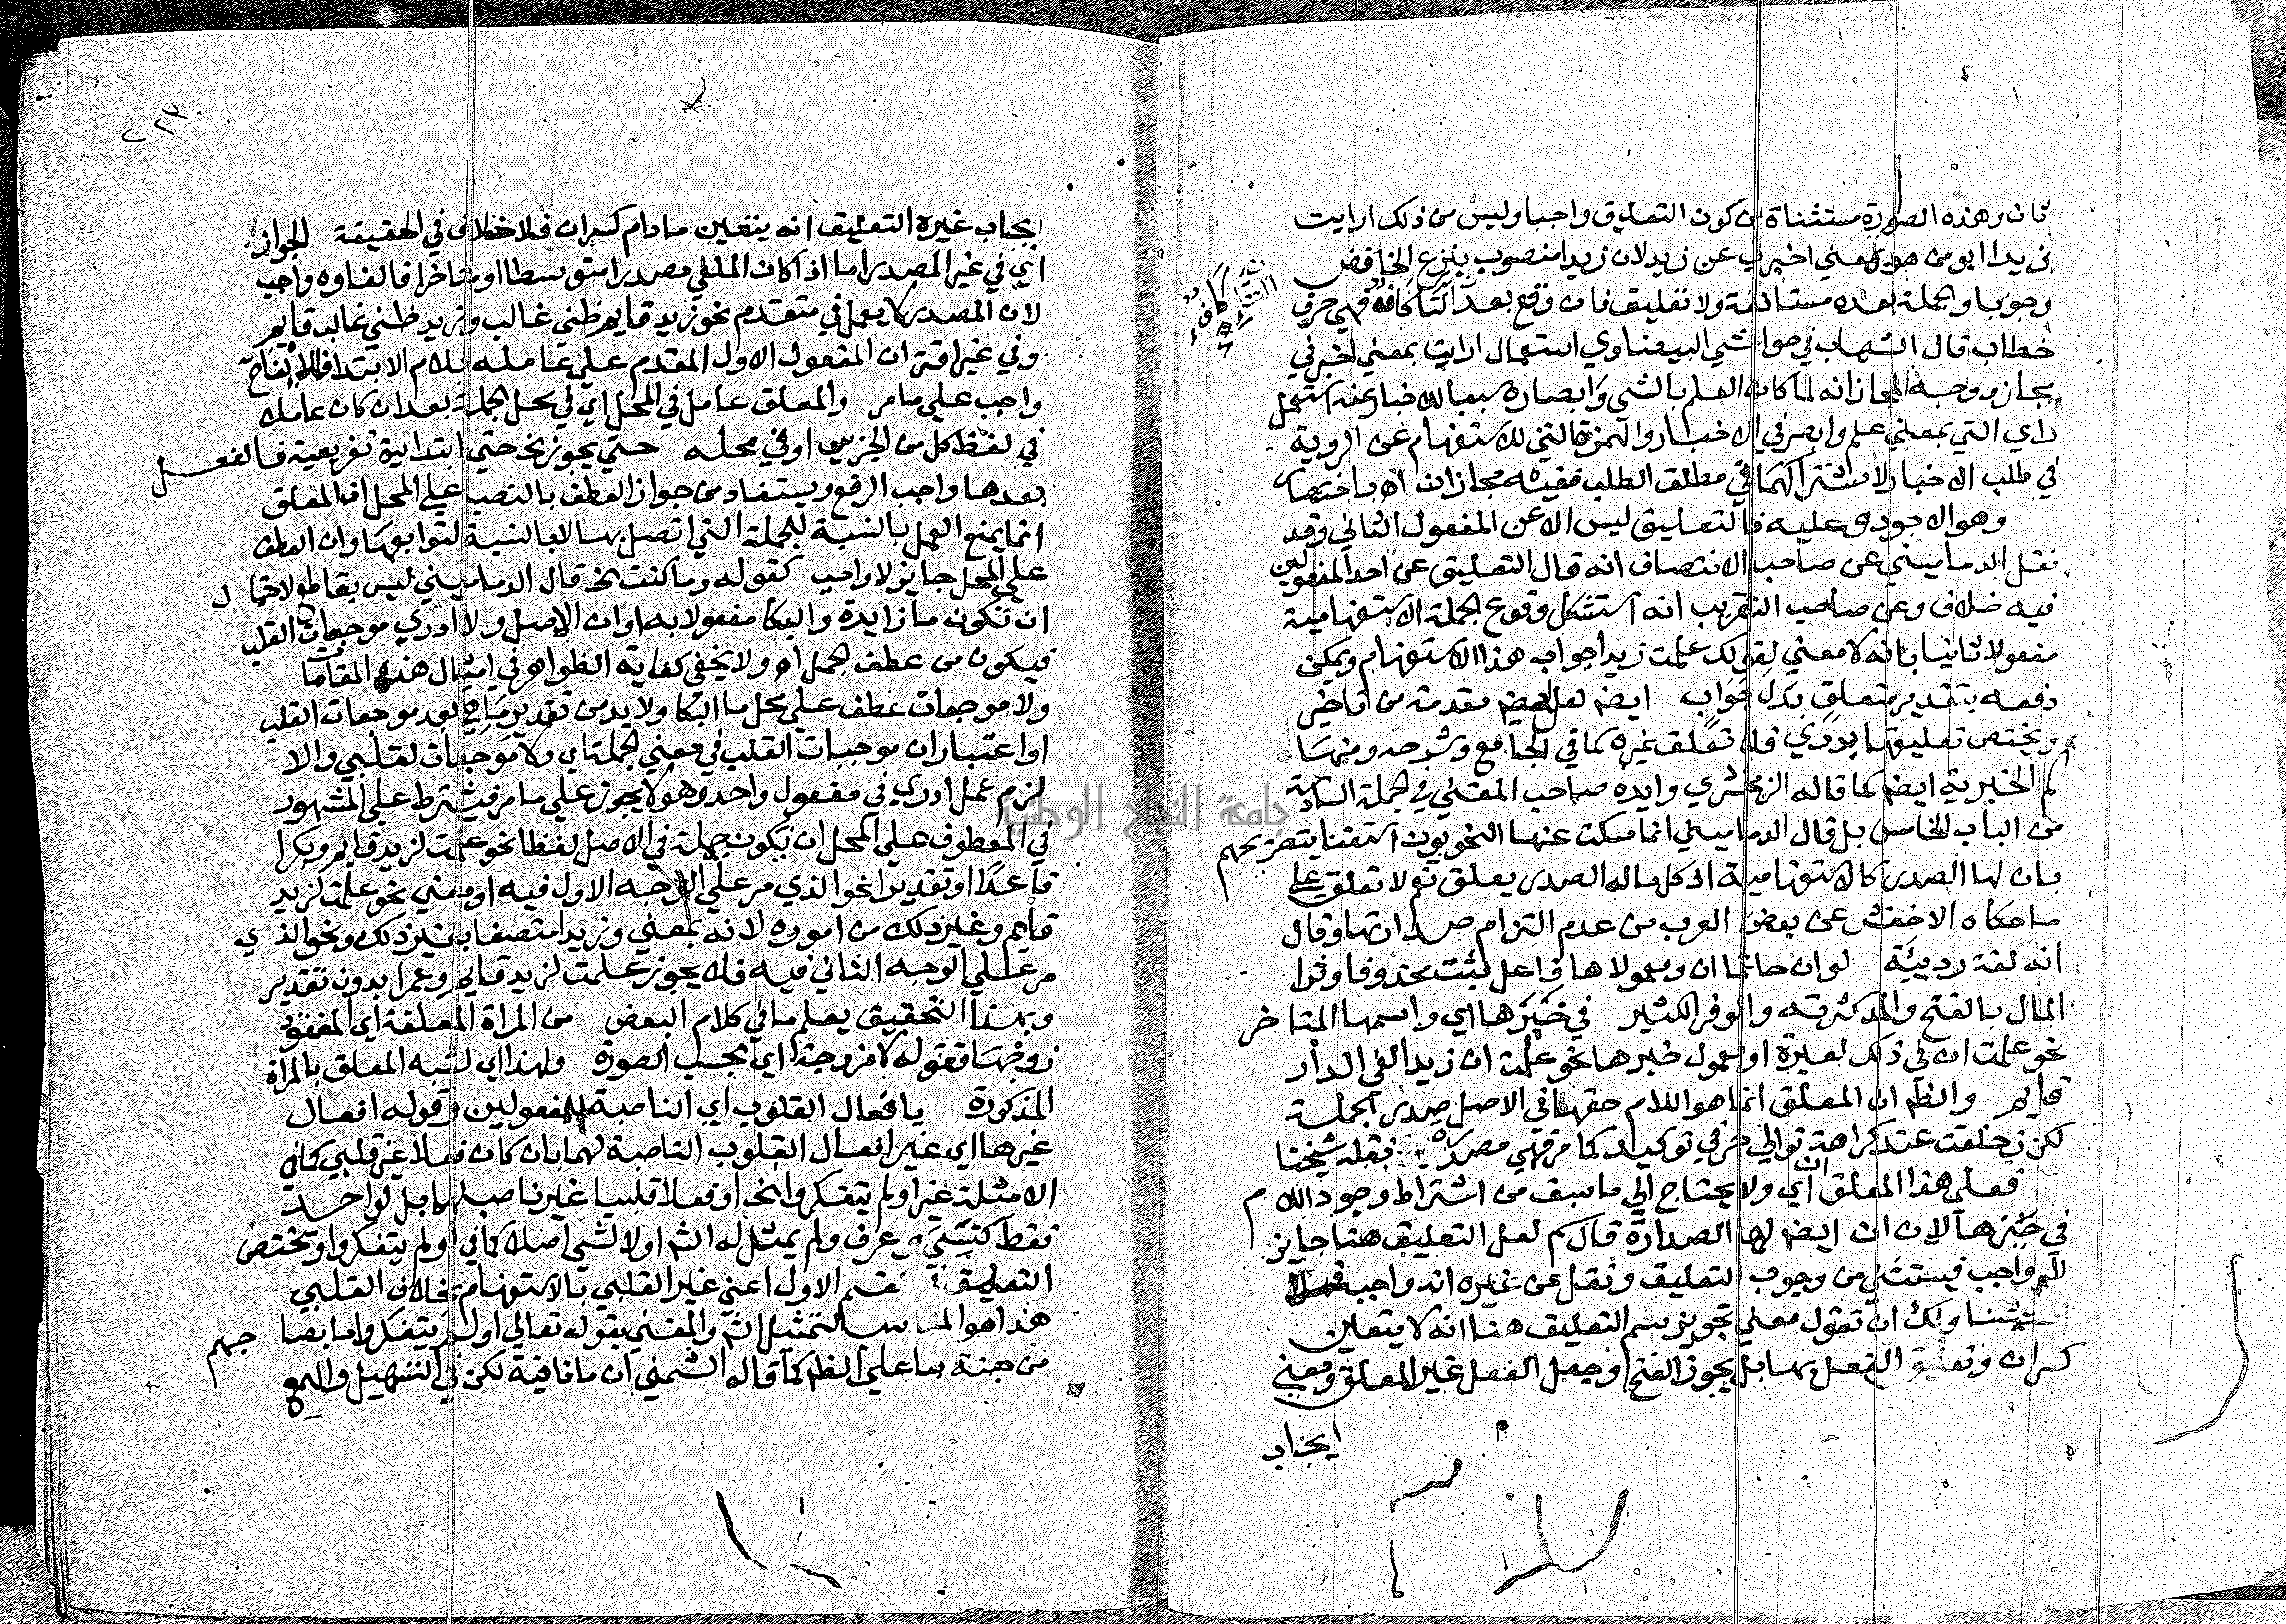 ثان وهذه الصورة مستثناة من كون التعليق واجبا وليس من ذلك ارايت
زيدا ابو من هو بمعني اخبرني عن زيد لان زيدا منصوب بنزع الخافض
وجوبا والجملة بعده مستانفة ولا تعليق فان وقع بعد التاكاف فهي حرف
خطاب قال الشهاب في حواشي البيضاوي استعمال ارايت بمعني اخبرني
مجاز ووجه المجاز انه لما كان العلم بالشي وابصاره سببا للاخبار عنه استعمل
راي التي بمعني علم وابصر في الاخبار والهمزة التي للاستفهام عن الروية
في طلب الاخبار لاشتراكهما في مطلق الطلب ففيه مجازان اه باختصار
وهو الاجود وعليه فالتعليق ليس الا عن المفعول الثاني وقد
نقل الدماميني عن صاحب الانتصاف انه قال التعليق عن احد المفعولين
فيه خلاف وعن صاحب التقريب انه استشكل وقوع الجملة الاستفهامية
مفعولا ثانيا بانه لا معني لقولك علمت زيدا جواب هذا الاستفهام ويمكن
دفعه بتقدير متعلق بدل جواب ايضا لعل ايضا مقدمة من تاخير
ويختص تعليقها بدري فلا تعلق غيره كما في الجامع وشرحه ومنها
كم الخبرية ايضا كما قاله الزمخشري وايده صاحب المغني في الجملة السادسة
من الباب الخامس بل قال الدماميني انما سكت عنها النحويون استغنا بتصريحهم
بان لها الصدر كالاستفهامية اذ كل ما له الصدر يعلق نعم لا تعلق علي
ما حكاه الاخفش عن بعض العرب من عدم التزام صدارتها وقال
انه لغة رديئة لو ان حاتما ان ومعمولاها فاعل بثبت محذوفا وثرا
المال بالفتح والمد كثرته والوفر الكثير في خبرها اي واسمها المتاخر
نحو علمت ان في ذلك لعبرة او معمول خبرها نحو علمت ان زيدا لفي الدار
قايم والظ ان المعلق انما هو اللام حقها في الاصل صدر الجملة
لكن زحلقت عند كراهة توالي حرفي توكيد كما مر فهي مصدرة نقله شيخنا
فعلي هذا المعلق ان اي ولا يحتاج الي ما سبق من اشتراط وجود اللام
في خبرها لان ان ايضا لها الصدارة قال سم لعل التعليق هنا جايز
لا واجب فيستثني من وجوب التعليق ونقل عن غيره انه واجب فلا
استثنا ولك ان تقول معني تجويز سم التعليق هنا انه لا يتعين
كسر ان وتعليق الفعل بها بل يجوز الفتح وجعل الفعل غير المعلق ومعني
ايجاب
٢٢٣
ايجاب غيره التعليق انه يتعين مادام كسر ان فلا خلاف في الحقيقة الجواز
اي في غير المصدر اما اذا كان الملغي مصدرا متوسطا او متاخرا فالغاوه واجب
لان المصدر لا يعمل في متقدم نحو زيد قايم ظني غالب وزيد ظني غالب قايم
وفي غير اقتران المفعول الاول المقدم علي عامله بلام الابتدا فالالغا ح
واجب علي ما مر والمعلق عامل في المحل اي في محل الجملة بعد ان كان عاملا
في لفظ كل من الجزءين او في محله حتي يجوز نخ حتي ابتدائية تفريعية فالفعل
بعدها واجب الرفع ويستفاد من جواز العطف بالنصب علي المحل ان المعلق
انما يمنع العمل بالنسبة للجملة التي اتصل بها لا بالنسبة لتوابعها وان العطف
علي المحل جايز لا واجب كقوله وما كنت الخ قال الدماميني ليس بقاطع لاحتمال
ان تكون ما زايدة والبكا مفعولا به او ان الاصل ولا ادري موجعات القلب
فيكون من عطف الجمل اه ولا يخفي كفاية الظواهر في امثال هذه المقامات
ولا موجعات عطف علي محل ما البكا ولا بد من تقدير ما هي بعد موجعات القلب
او اعتبار ان موجبات القلب في معني الجملة اي ولا موجعات لقلبي والا
لزم عمل ادري في مفعول واحد وهو لا يجوز علي ما مر فيشترط علي المشهور
في المعطوف علي المحل ان يكون جملة في الاصل لفظا نحو علمت لزيد قايم وبكرا
قاعدا او تقديرا نحو الذي مر علي الوجه الاول فيه او بمعني نحو علمت لزيد
قايم وغير ذلك من اموره لانه بمعني وزيدا متصفا بغير ذلك ونحو الذي
مر علي الوجه الثاني فيه فلا يجوز علمت لزيد قايم وعمرا بدون تقدير
وبهذا التحقيق يعلم ما في كلام البعض من المراة المعلقة اي المفقود
زوجها فقوله لا مزوجة اي بحسب الصورة ولهذا اي لشبه المعلق بالمراة
المذكورة بافعال القلوب اي الناصبة للمفعولين وقوله افعال
غيرها اي غير افعال القلوب الناصبة لهما بان كان فعلا غير قلبي كما في
الامثلة غير اولم يتفكروا الخ او فعلا قلبيا غير ناصب لهما بل لواحد
فقط كنسي وعرف ولم يمثل له الش اولا لشي اصلا كما في اولم يتفكروا ويختص
التعليق بقسم الاول اعني غير القلبي بالاستفهام بخلاف القلبي
هذا هو المناسب لتمثيل الش والمغني بقوله تعالي اولم يتفكروا ما بصاحبهم
من جنة بنا علي الظ كما قاله الشمني ان ما نافية لكن في التسهيل والهمع
جامعة النجاح الوطنية